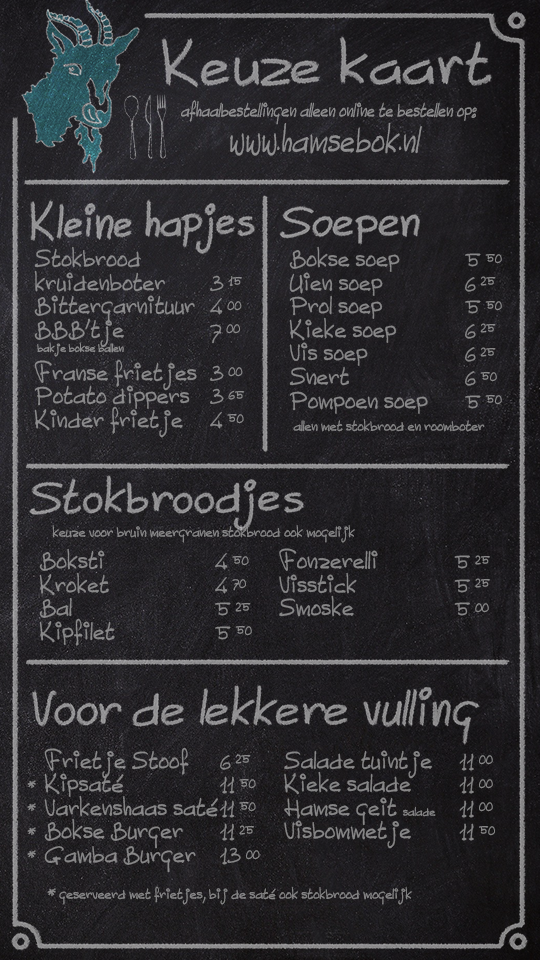 Keuze kaart
afhaalbestellingen alleen online te bestellen op:
www.hamsebok.nl
Kleine hapjes
Stokbrood
kruidenboter 3 15
Bittergarnituur 4 00
BBB'tje 7 00
bakje bokse ballen
Franse frietjes 3 00
Potato dippers 3 65
Kinder frietje 4 50
Soepen
Bokse soep 5 50
Uien soep 6 25
Prol soep 5 50
Kieke soep 6 25
Vis soep 6 25
Snert 6 50
Pompoen soep 5 50
allen met stokbrood en roomboter
Stokbroodjes
keuze voor bruin meergranen stokbrood ook mogelijk
Boksti 4 50
Kroket 4 70
Bal 5 25
Kipfilet 5 50
Fonzerelli 5 25
Visstick 5 25
Smoske 5 00
Voor de lekkere vulling
Frietje Stoof 6 25
* Kipsaté 11 50
* Varkenshaas saté 11 50
* Bokse Burger 11 25
* Gamba Burger 13 00
Salade tuintje 11 00
Kieke salade 11 00
Hamse geit salade 11 00
Visbommetje 11 50
* geserveerd met frietjes, bij de saté ook stokbrood mogelijk